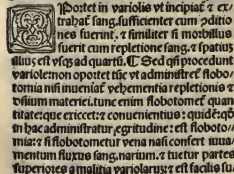 Oportet in variolis vt incipiat⁊ ex⸗
trahat͛ sang. sufficienter cum ꝯditio
nes fuerint. ⁊ similiter si morbilli
fuerit cum repletione sang. ⁊ spatiuȝ
illius est vsqȝ ad quartū. ¶ Sed qñ procedunt
variole: non oportet tūc vt administret͛ flobo⸗
tomia nisi inueniat͛ vehementia repletionis ⁊
dñium materiei. tunc enim flobotomet͛ quan
titate: que exiccet: ⁊ conuenientius: quidē: qđ
in hac administratur, egritudine: est floboto⸗
mia: ⁊ si flobotometur vena nasi confert iuua⸗
mentum fluxus sang. narium. ⁊ tuetur partes
superiores a malitia variolarum: ⁊ est facilius